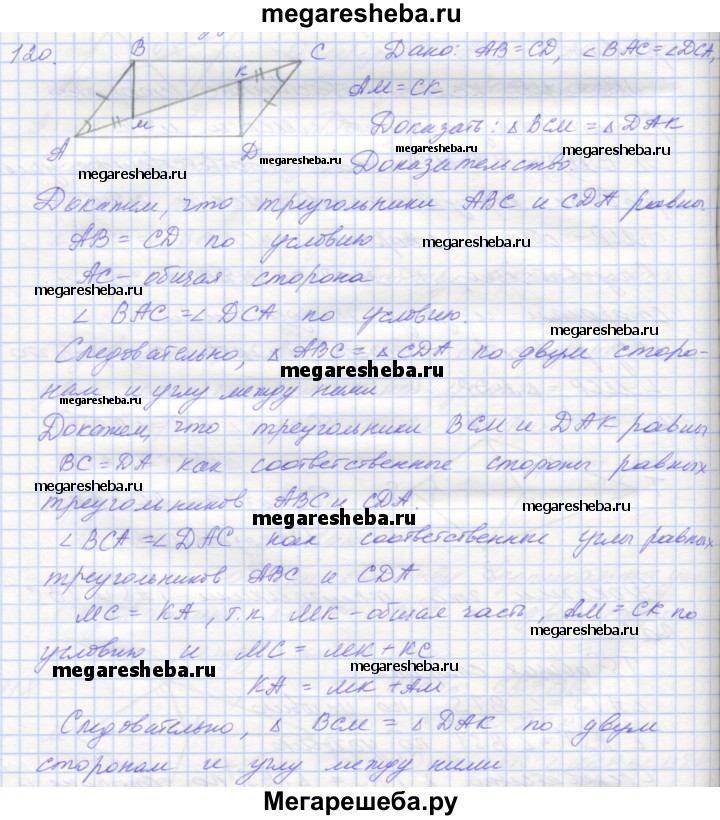 megaresheba.ru
120.
B
C
K
M
A
D
Дано: AB = CD, ∠BAC = ∠DCA,
AM = CK
Доказать: △ BCM = △ DAK
megaresheba.ru
megaresheba.ru
megaresheba.ru
Доказательство
megaresheba.ru
Докажем, что треугольники ABC и CDA равны
AB = CD по условию
megaresheba.ru
AC - общая сторона
megaresheba.ru
∠ BAC = ∠ DCA по условию.
megaresheba.ru
Следовательно, △ ABC = △ CDA по двум сторо-
megaresheba.ru
нам и углу между ними
megaresheba.ru
Докажем, что треугольники BCM и DAK равны
BC = DA как соответственные стороны равных
megaresheba.ru
megaresheba.ru
треугольников ABC и CDA.
megaresheba.ru
∠ BCA = ∠ DAC как соответственные углы равных
треугольников ABC и CDA
MC = KA, т.к. MK - общая часть, AM = CK по
megaresheba.ru
условию и MC = MK + KC
megaresheba.ru
megaresheba.ru
KA = MK + AM
Следовательно, △ BCM = △ DAK по двум
сторонам и углу между ними
Мегарешеба.ру